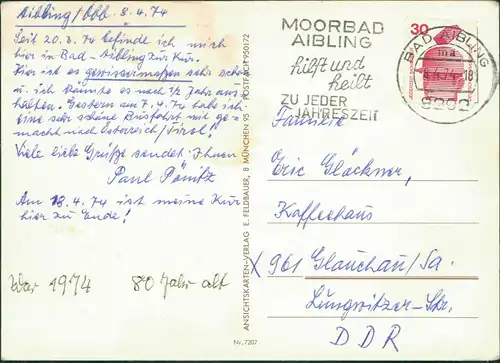 Aibling/Obb. 8.4.74
Seit 20.3.74 befinde ich mich
hier in Bad-Aibling zur Kur.
Hier ist es gewissermaßen sehr schön
u. ich könnte es noch 1/2 Jahr aus-
halten. Gestern am 7.4.74 habe ich
eine sehr schöne Busfahrt mit ge-
macht nach Österreich/Tirol!
Viele liebe Grüße sendet Ihnen
Paul Pönitz
Am 18.4.74 ist meine Kur
hier zu Ende!
War 1974 80 Jahr alt
ANSICHTSKARTEN-VERLAG E. FELDBAUER, 8 MÜNCHEN 95 · POSTFACH 950172
Nr. 7207
MOORBAD
AIBLING
hilft und
heilt
ZU JEDER
JAHRESZEIT
30
BAD AIBLING
ma
-18
8202
Familie
Eric Glöckner,
Kaffeehaus
X 961 Glauchau/Sa.
Lungwitzer-Str.
DDR